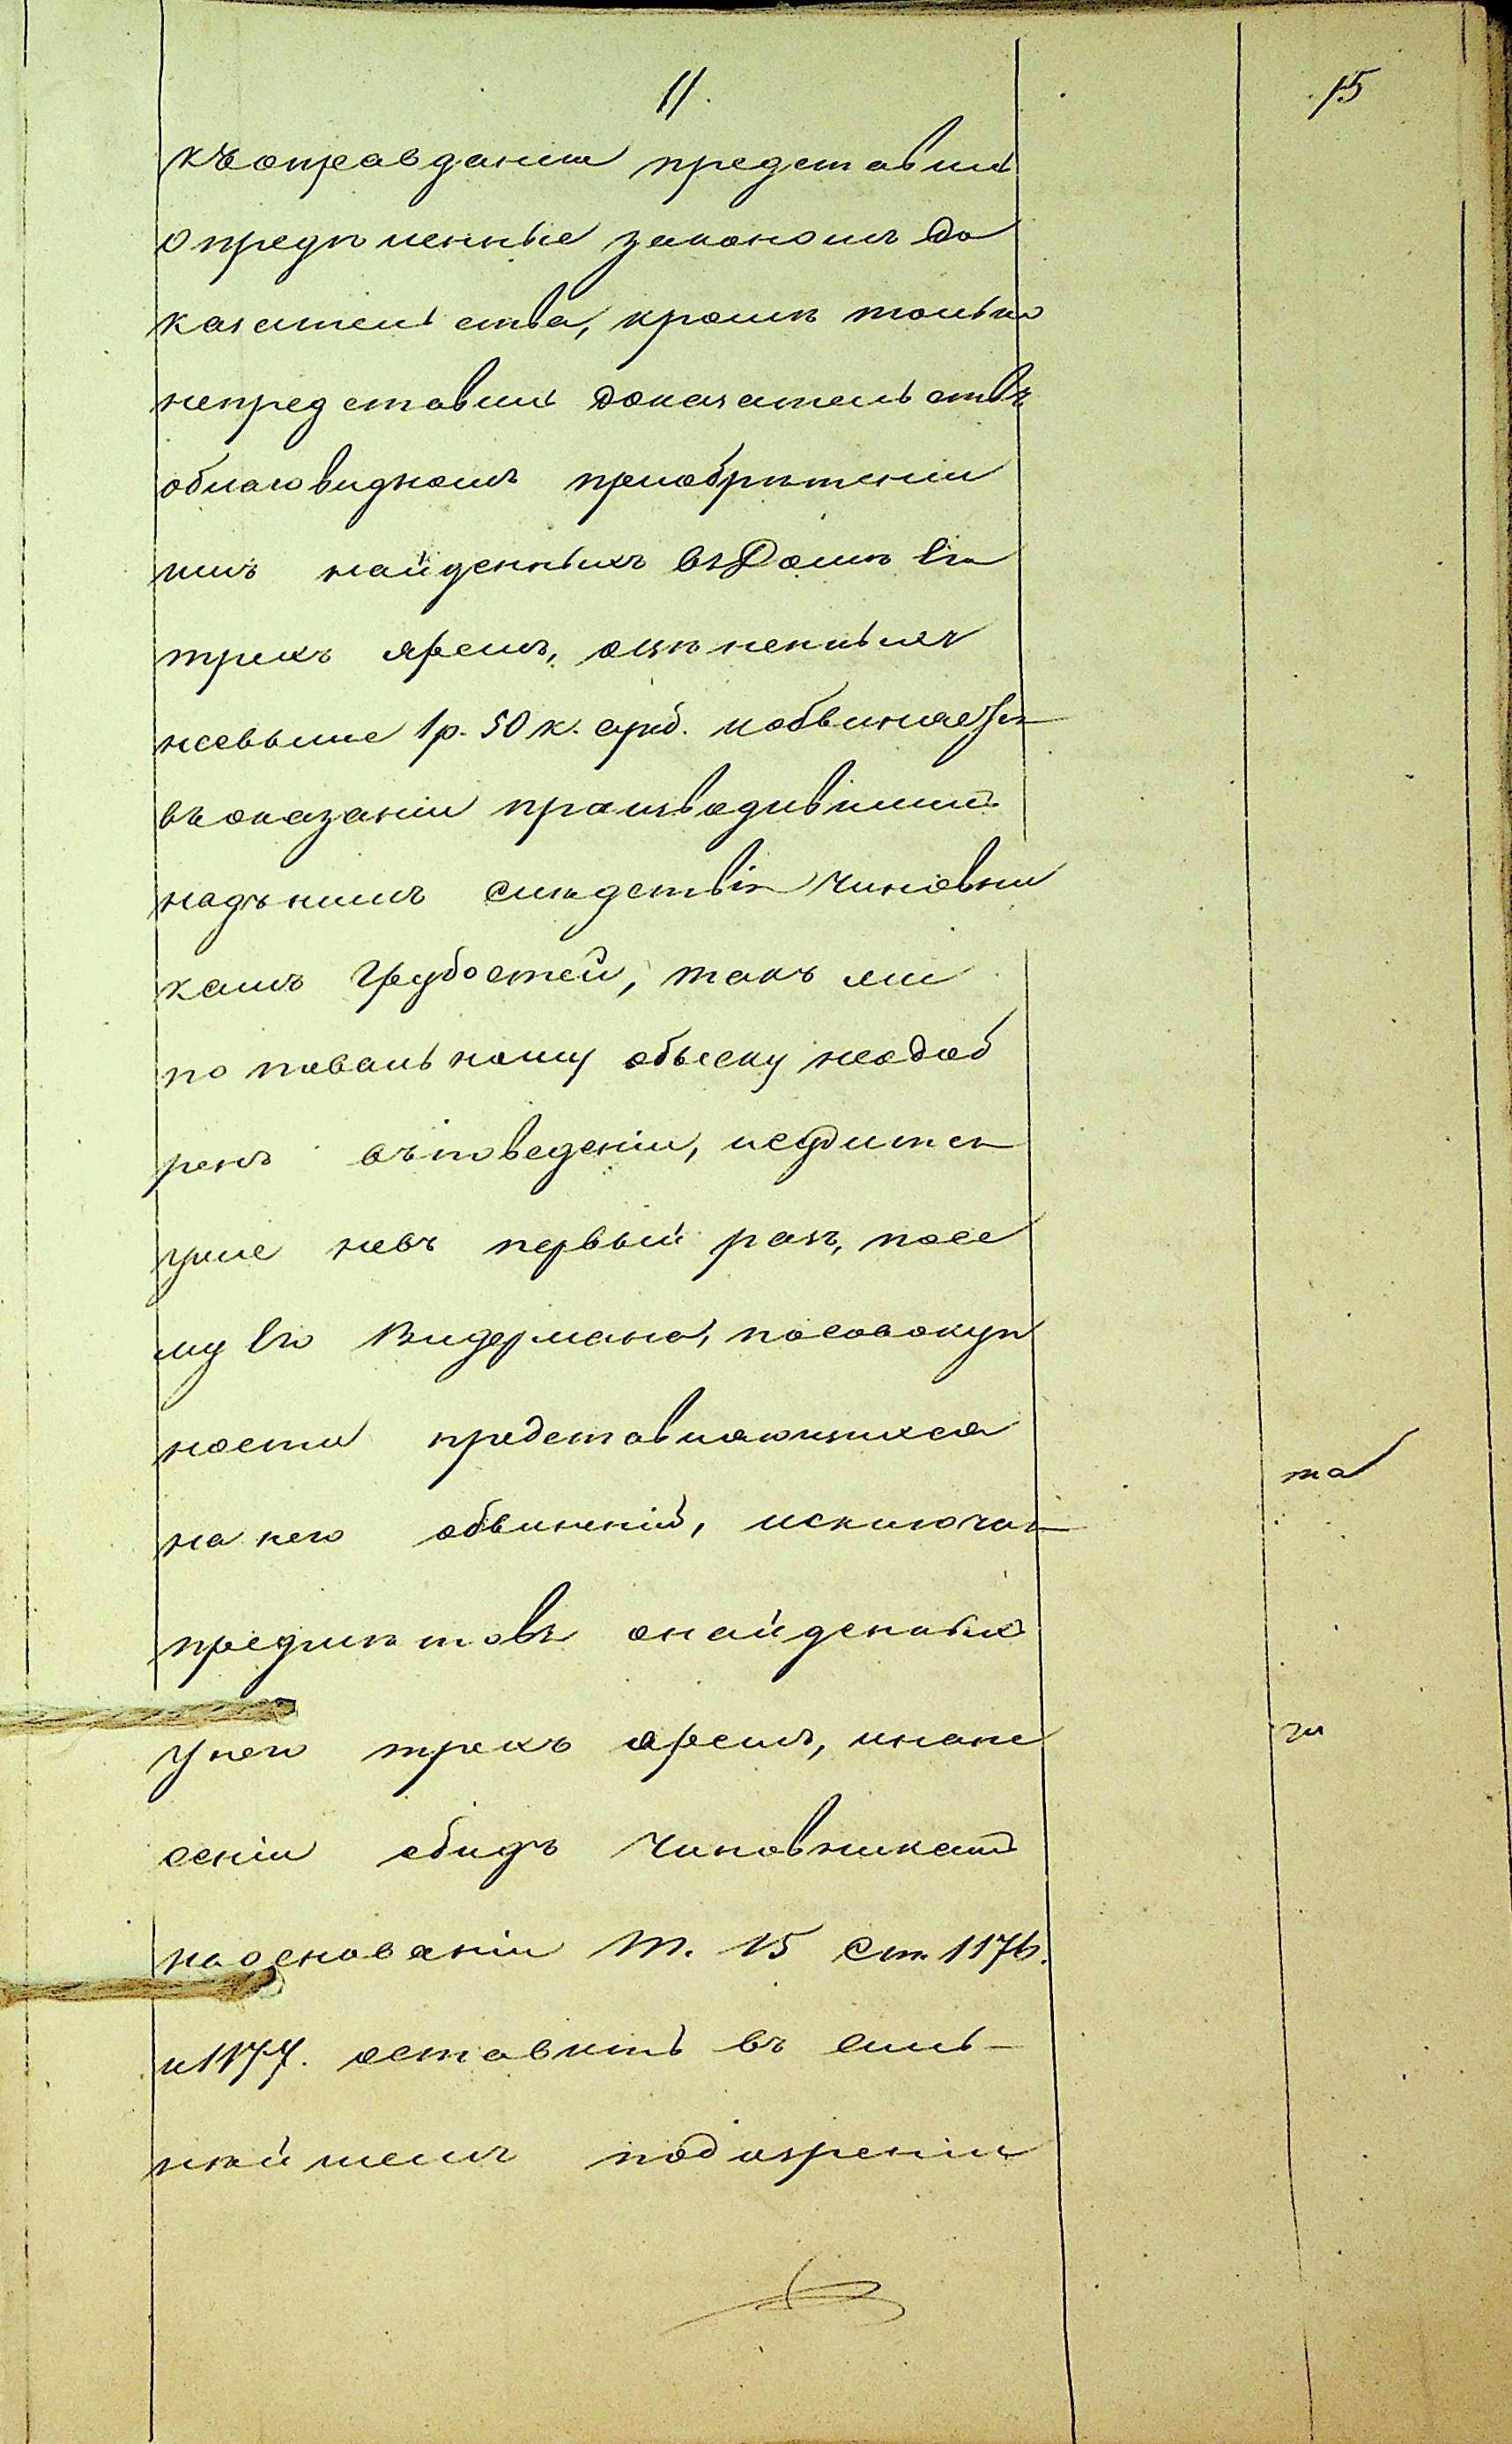 11.
15
къоправданию представилъ
опредѣленные закономъ до
казательства, кромѣ только
непредставилъ доказательствъ
облаговидномъ приобрѣтении
имъ найденныхъ въ Домѣ Его
трехъ яремъ, оцѣненныхъ
невыше 1 р. 50 к. сереб. и обвиняется
въ оказаніи производившимъ
надънимъ слѣдствіе Чиновни
камъ Грубостей, такъ ли
по повальному обыску неодоб
ренъ въповеденіи, исудится
уже невъ первый разъ, посе
му Его Видермана, посовокуп
ности представляющихся
на него обвиненій, исключая
предмѣтовъ онайденныхъ
Унего трехъ яремъ, инане
сеніи обидъ Чиновникамъ
наоснованіи Т. 15 Ст. 1176.
и 1177. оставить въ силь-
нѣйшемъ подозреніи
та
ги